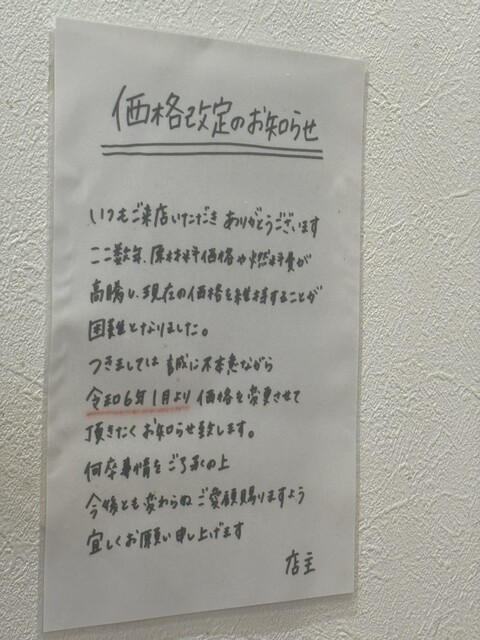 価格改定のお知らせ
いつもご来店いただき ありがとうございます
ここ数年、原材料価格や燃料費が
高騰し、現在の価格を維持することが
困難となりました。
つきましては 誠に不本意ながら
令和6年1月より 価格を変更させて
頂きたくお知らせ致します。
何卒事情をご了承の上
今後とも変わらぬご愛顧賜りますよう
宜しくお願い申し上げます
店主